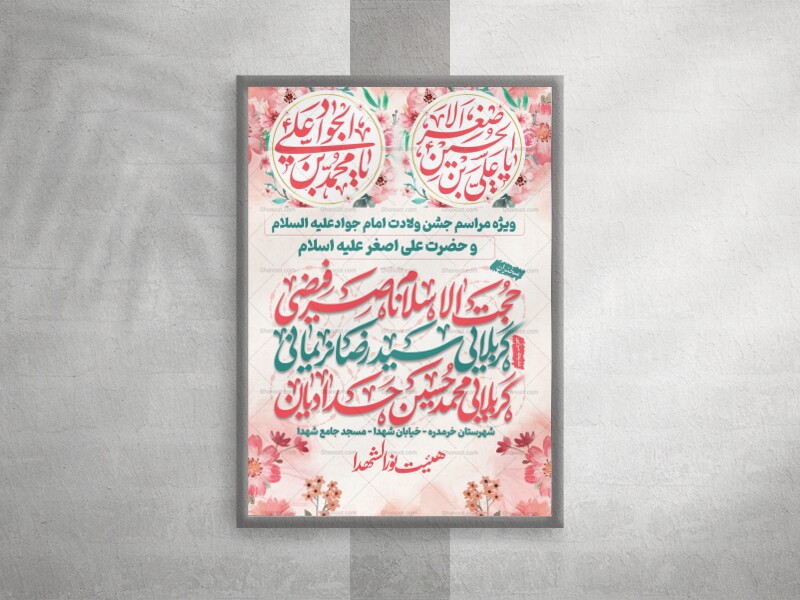 یا علی بن الحسین الاصغر
یا محمد بن علی الجواد
ویژه مراسم جشن ولادت امام جوادعلیه السلام
و حضرت علی اصغر علیه اسلام
سخنران
حجت الاسلام ناصر فیضی
کربلایی سید رضا نریمانی
کربلایی محمد حسین حدادیان
شهرستان خرمدره - خیابان شهدا - مسجد جامع شهدا
هیئت نورالشهدا